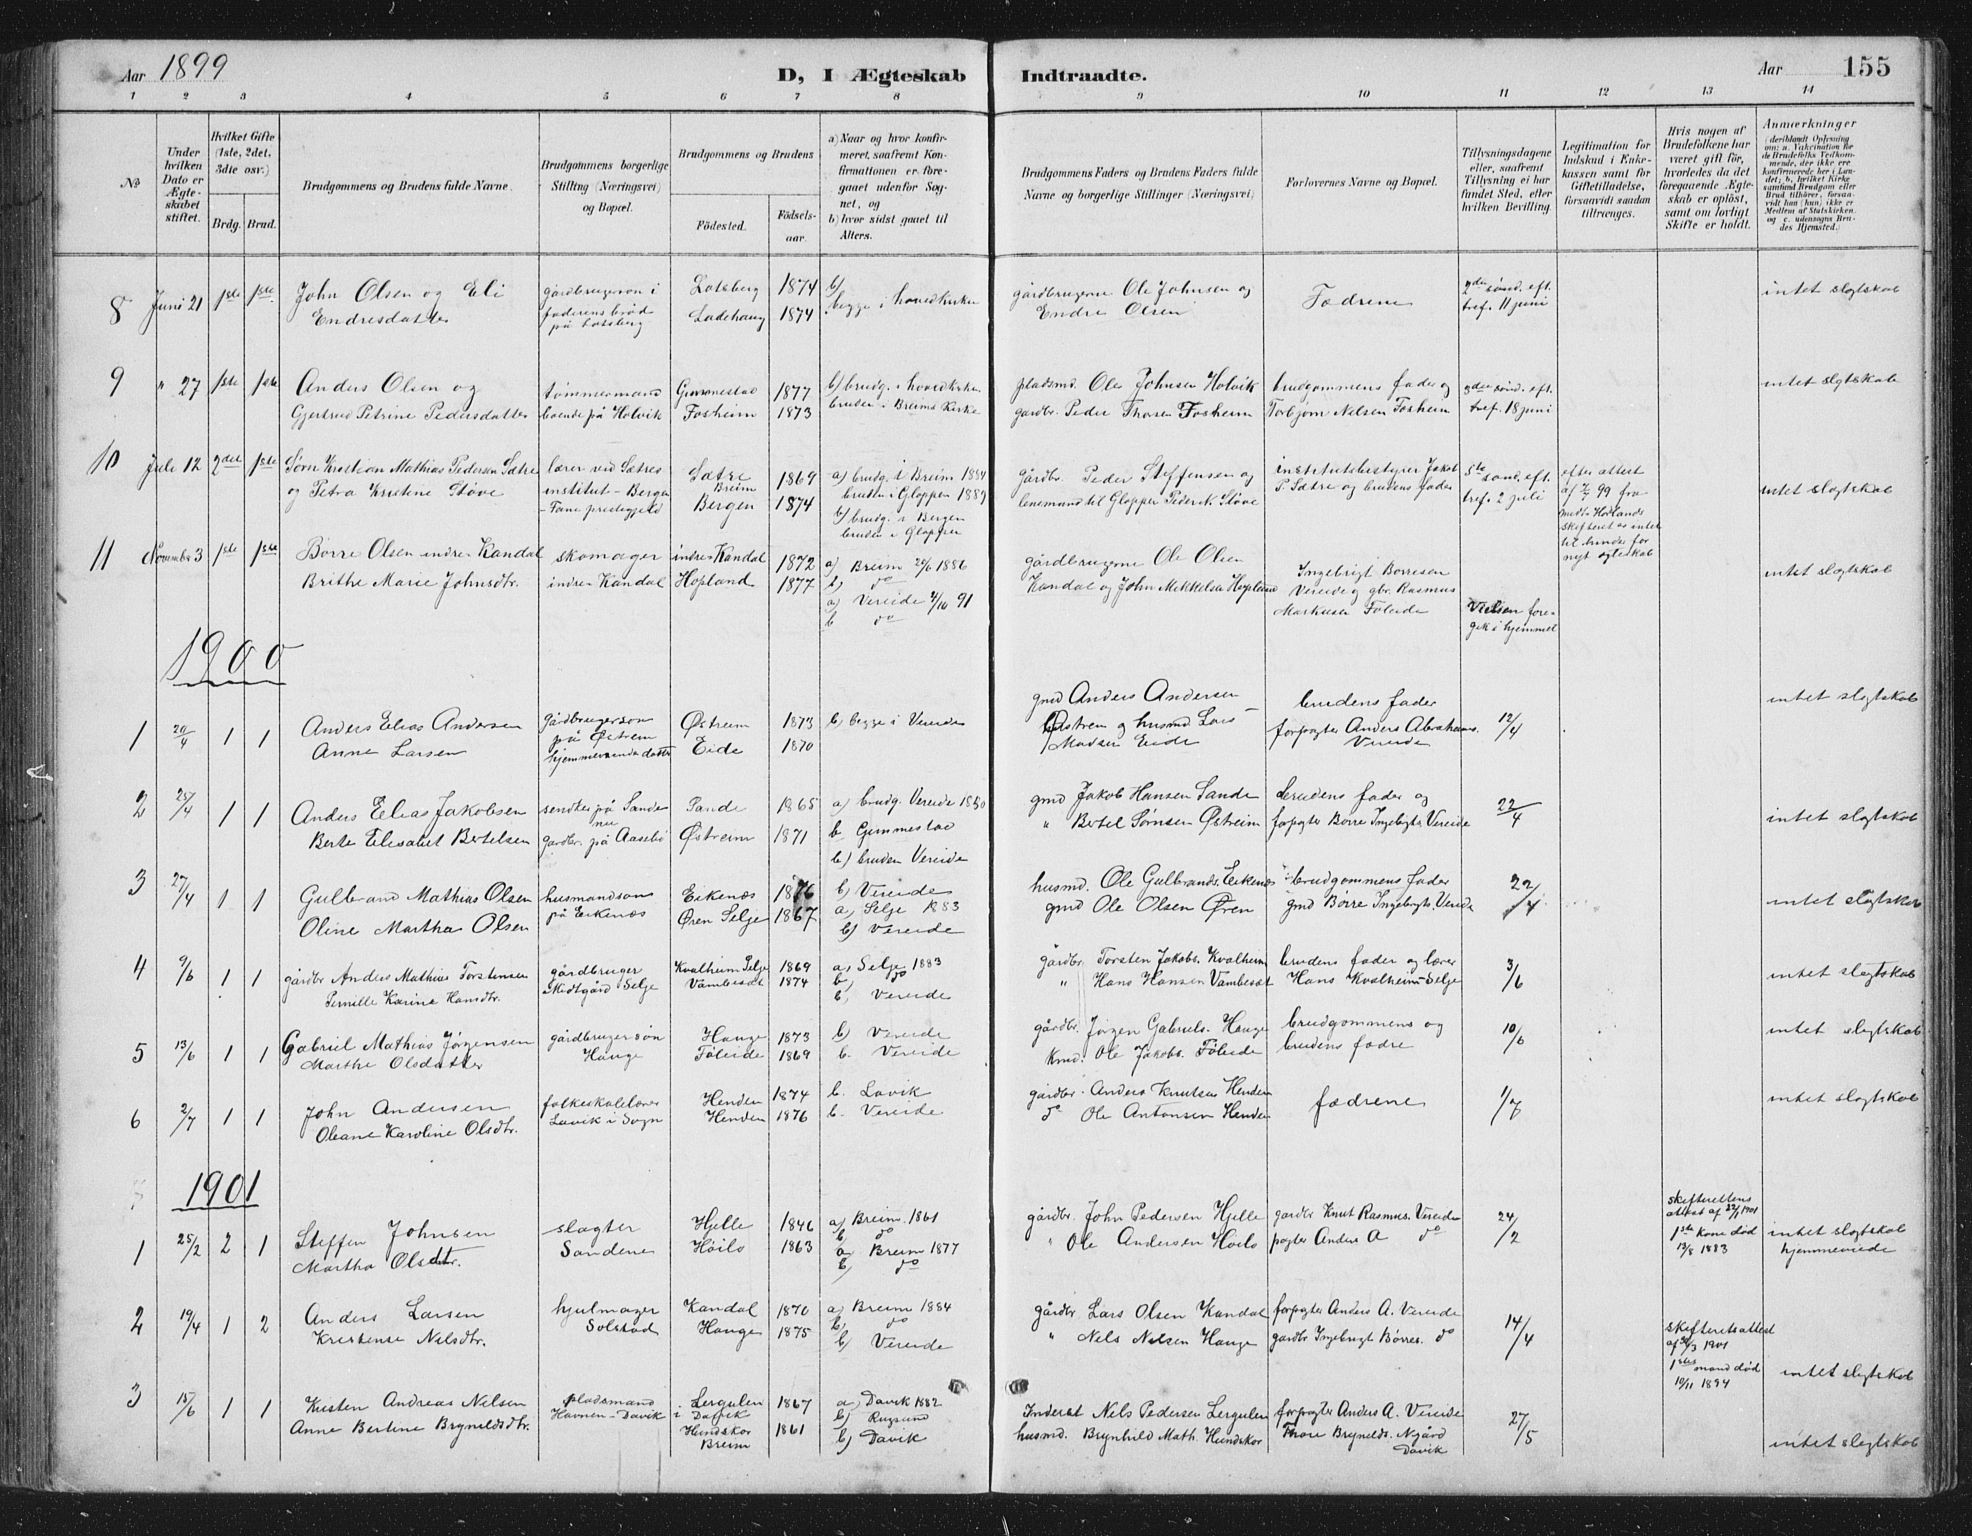 Aar 1899
D, I Ægteskab Indtraadte.
Aar 155
1 2 3 4 5 6 7 8 9 10 11 12 13 14
No
Under hvilken Dato er Ægteskabet stiftet.
Hvilket Gifte (1ste, 2det, 3die osv.)
Brdg. Brud.
Brudgommens og Brudens fulde Navne.
Brudgommens borgerlige Stilling (Næringsvei) og Bopæl.
Brudgommens og Brudens
Födested. Födselsaar.
a) Naar og hvor konfirmeret, saafremt Konfirmationen er foregaaet udenfor Sognet, og
b) hvor sidst gaaet til Alters.
Brudgommens Faders og Brudens Faders fulde Navne og borgerlige Stillinger (Næringsvei)
Forlovernes Navne og Bopæl.
Tillysningsdagene eller, saafremt Tillysning ei har fundet Sted, efter hvilken Bevilling
Legitimation for Indskud i Enkekassen samt for Giftetilladelse, forsaavidt saadan tiltrænges.
Hvis nogen af Brudefolkene har været gift för, hvorledes da det foregaaende Ægteskab er oplöst, samt om lovligt Skifte er holdt.
Anmærkninger (deriblandt Oplysning om: a. Vakcination for de Brudefolks Vedkommende, der ikke ere konfirmerede her i Landet; b. hvilket Kirkesamfund Brudgom eller Brud tilhörer, forsaavidt han (hun) ikke er Medlem af Statskirken, og c. udensogns Brudes Hjemsted.)
8 Juni 21 1ste 1ste John Olsen og Eli gårdbrugersøn i Lotsberg 1874 b) gårdbrugerne Ole Johnsen og Fædrene 2den sönd. eft. intet slegtskab
Endresdatter faderens brød Ladehaug 1874 begge i hovedkirke Endre Olsen tref. 11 juni
på Lotsberg
9 " 27 1ste 1ste Anders Olsen og tømmermand Gimmestad 1877 b) brudg. i hovedkirken pladsmd. Ole Johnsen Holvik brudgommens fader og 3die sönd. eft. intet slegtskab
Gjertrud Petrine Pedersdatter boende på Holvik Fosheim 1873 bruden i Breims Kirke gårdbr. Peder Thorsen Fosheim Torbjørn Nelsen Fosheim tref. 18 juni
10 Juli 12 2det 1ste Sørn Kristian Mathias Pedersen Sætre lærer ved Sætres Sætre 1869 a) brudg. i Breim 1884 gårdbr. Peder Steffensen og institutsbestyrer Jakob 5te sönd. eft. efter attest
og Petra Kristine Støve institut - Bergen Breim bruden i Gloppen 1889 lensmand til Gloppen Peder K. Støve P. Sætre og brudens fader tref. 2 juli af 7/7 99 fra intet slegtskab
- Fane prestegjeld Bergen 1874 b) brudg. i Bergen medts Hordlands
bruden i Gloppen skifteret os intet
til hinder for
nyt egteskab
11 November 3 1ste 1ste Børre Olsen indre Kandal skomager indre Kandal 1872 a) Breim 20/6 1886 gårdbrugerne Ole Olsen Ingebrigt Børresen intet slegtskab
Brithe Marie Johnsdtr. indre Kandal Hopland 1877 b) do Kandal og John Mikkelsen Hopland Vereide og gbr. Rasmus
a) Vereide 4/10 91 Markusen Føleide Vielsen fore-
b do gik i hjemmet
1900
1 20/4 1 1 Anders Elias Andersen gårdbrugersøn Østreim 1873 b) begge i Vereide gmd Anders Andersen brudens fader 12/4 intet slegtskab
Anne Larsen på Østrem Eide 1870 Østrem og husmd Lars forpagter Anders Abrahams.
hjemmeværende datter Madsen Eide Vereide
2 25/4 1 1 Anders Elias Jakobsen sendker på Sande Sande 1865 a) brudg. Vereide 1880 gmd Jakob Hansen Sande brudens fader og 22/4 intet slegtskab
Berte Elisabet Bertelsen nu gardbr. på Aasebø Østreim 1871 b Gimmestad " Bertel Sørnsen Østreim forpagter Børre Ingebrigts Vereide
b) bruden Vereide
3 27/4 1 1 Gulbrand Mathias Olsen husmandssøn Eikenæs 1876 b) Vereide husmd. Ole Gulbrands. Eikenæs brudgommens fader 22/4 intet slegtskab
Oline Martha Olsen på Eikenæs Øren Selje 1867 a) Selje 1883 gmd Ole Olsen Øren gmd Børre Ingebrigts. Vereide
b) Vereide
4 9/6 1 1 gårdbr Anders Mathias Torstensen gårdbruger Kvalheim Selje 1869 a) Selje 1883 gårdbr. Torsten Jakobs. Kvalheim brudens fader og lærer 3/6 intet slegtskab
Pernille Karine Hansdtr. Midtgård Selje Vambesæt 1874 b) do " Hans Hansen Vambesæt Hans Kvalheim-Selje
b) Vereide
5 13/6 1 1 Gabriel Mathias Jørgensen gårdbrugersøn Hauge 1873 b) Vereide gårdbr. Jørgen Gabriels. Hauge brudgommens og 10/6 intet slegtskab
Marthe Olsdatter Hauge Føleide 1869 b. Vereide Kmd. Ole Jakobs. Føleide brudens fædre
6 2/7 1 1 John Andersen folkeskolelærer Henden 1874 b. Lavik gårdbr. Anders Knutsen Henden fædrene 1/7 intet slegtskab
Oleane Karoline Olsdtr. Lavik i Sogn Henden 1876 b. Vereide do Ole Antonsen Henden
1901
1 25/2 2 1 Steffen Johnsen slagter Hjelle 1846 a) Breim. 1861 gårdbr. John Pedersen Hjelle gardbr Knut Rasmus. Vereide 24/2 skifterettens attest af 22/1 1901
Martha Olsdtr. Sandene Høilo 1863 b) do " Ole Andersen Høilo pagter Anders A do 1ste kone død 13/8 1883 intet slegtskab hjemmeviede
a) Breim 1877
b) do
2 19/4 1 2 Anders Larsen hjulmager Kandal 1870 a) Breim 1884 gårdbr Lars Olsen Kandal forpagter Anders A. Vereide 14/4 skifteretsattest
Kristense Nilsdtr. Solstad Hauge 1875 b) do " Nels Nelsen Hauge gardbr Ingebrigt Børres. do af 30/3 1901
b) Vereide 1ste mand død 10/11 1894 intet slegtskab
3 15/6 1 1 Kristen Andreas Nelsen pladsmand Lergulen 1867 a) Davik 1882 Inderst Nels Pedersen Lergulen forpagter Anders A. Vereide 27/5
Anne Bertine Brynildsdtr. Havnen-Davik i Davik b) Rugsund husmd. Brynhild Math. Hundskor Thore Brynelds. Nygård intet slegtskab
Hundskor 1861 b) Davik Davik
Breim